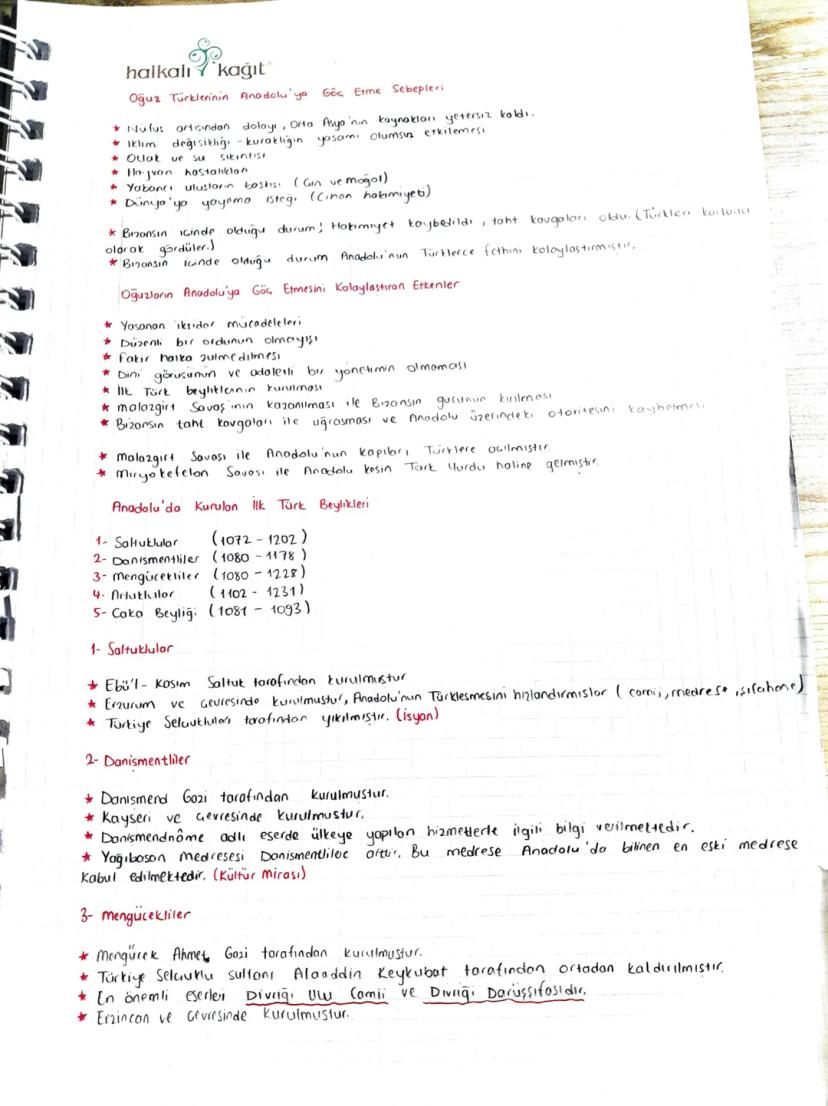 halkalı kağıt
Oğuz Türklerinin Anadolu'ya Göç Etme Sebepleri
★ Nüfus artışından dolayı, Orta Asya'nın kaynakları yetersiz kaldı.
★ İklim değişikliği - kuraklığın yaşamı olumsuz etkilemesi
★ Otlak ve su sıkıntısı
★ Hayvan hastalıkları
★ Yabancı ulusların baskısı (Çin ve moğol)
★ Dünya'ya yayılma isteği (Cihan hakimiyeti)
★ Bizansın içinde olduğu durum; Hakimiyet kaybedildi, taht kavgaları oldu. (Türkleri kurtarıcı
olarak gördüler.)
★ Bizansın içinde olduğu durum Anadolu'nun Türklerce fethini kolaylaştırmıştır.
Oğuzların Anadolu'ya Göç Etmesini Kolaylaştıran Etkenler
★ Yaşanan iktidar mücadeleleri
★ Düzenli bir ordunun olmayışı
★ Fakir halka zulmedilmesi
★ Dini görüşünün ve adaletli bir yönetimin olmaması
★ İlk Türk beyliklerinin kurulması
★ malazgirt Savaş'ının kazanılması ile Bizansın gücünün kırılması
★ Bizansın taht kavgaları ile uğraşması ve Anadolu üzerindeki otoritesini kaybetmesi
★ malazgirt Savaşı ile Anadolu'nun kapıları Türklere açılmıştır.
★ Miryokefelon Savaşı ile Anadolu kesin Türk Yurdu haline gelmiştir.
Anadolu'da Kurulan İlk Türk Beylikleri
1- Saltuklular (1072 - 1202)
2- Danişmentliler (1080 - 1178)
3- mengücekliler (1080 - 1228)
4- Artuklular (1102 - 1231)
5- Çaka Beyliği (1081 - 1093)
1- Saltuklular
★ Ebü'l - Kasım Saltuk tarafından kurulmuştur
★ Erzurum ve çevresinde kurulmuştur, Anadolu'nun Türkleşmesini hızlandırmışlar (camii, medrese, şifahane)
★ Türkiye Selçukluları tarafından yıkılmıştır. (İsyan)
2- Danişmentliler
★ Danişmend Gazi tarafından kurulmuştur.
★ Kayseri ve çevresinde kurulmuştur.
★ Danişmendnâme adlı eserde ülkeye yapılan hizmetlerle ilgili bilgi verilmektedir.
★ Yağıbasan Medresesi Danişmentlilere aittir. Bu medrese Anadolu'da bilinen en eski medrese
kabul edilmektedir. (Kültür Mirası)
3- mengücekliler
★ Mengücek Ahmet Gazi tarafından kurulmuştur.
★ Türkiye Selçuklu sultanı Alaaddin Keykubat tarafından ortadan kaldırılmıştır.
★ En önemli eserleri Divriği Ulu Camii ve Divriği Darüşşifasıdır.
★ Erzincan ve çevresinde kurulmuştur.